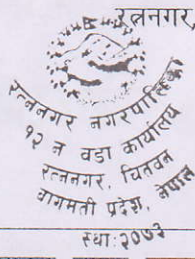 रत्ननगर,
रत्ननगर नगरपालिका
१२ न वडा कार्यालय
रत्ननगर, चितवन
बागमती प्रदेश, नेपाल
स्था: २०७३